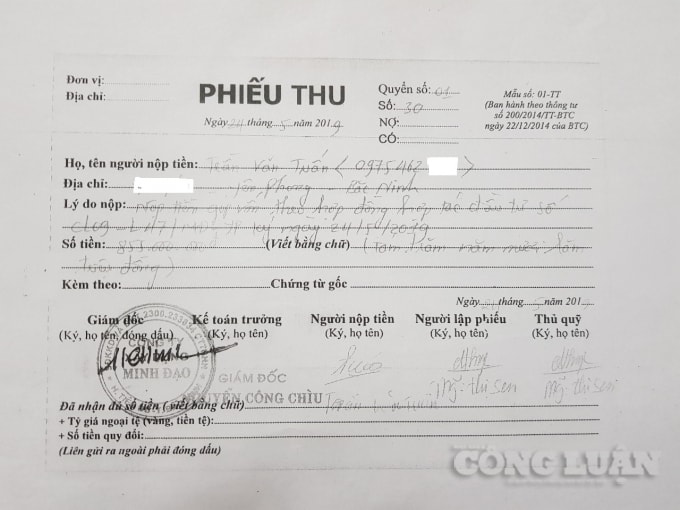 CÔNG LUẬN
Đơn vị:
Địa chỉ:
PHIẾU THU
Ngày 24 tháng 5 năm 2019
Quyển số: 01
Số: 30
NỢ:
CÓ:
Mẫu số: 01-TT
(Ban hành theo thông tư
số 200/2014/TT-BTC
ngày 22/12/2014 của BTC)
Họ, tên người nộp tiền: Trần Văn Tuấn (0975462
Địa chỉ: Yên Phong - Bắc Ninh
Lý do nộp: Nộp tiền góp vốn theo hợp đồng hợp tác đầu tư số
ký ngày 24/5/2019
Số tiền: 855.000.000 (Viết bằng chữ) (Tám trăm năm mươi lăm
triệu đồng)
Kèm theo: Chứng từ gốc
Ngày tháng năm 201
Giám đốc Kế toán trưởng Người nộp tiền Người lập phiếu Thủ quỹ
(Ký, họ tên, đóng dấu) (Ký, họ tên) (Ký, họ tên) (Ký, họ tên) (Ký, họ tên)
CÔNG TY
MINH ĐẠO
GIÁM ĐỐC
NGUYỄN CÔNG CHÌU
Trần Văn Tuấn
Ng Thị Sen
Ng Thị Sen
Đã nhận đủ số tiền (viết bằng chữ)
+ Tỷ giá ngoại tệ (vàng, tiền tệ):
+ Số tiền quy đổi:
(Liên gửi ra ngoài phải đóng dấu)
CÔNG LUẬN